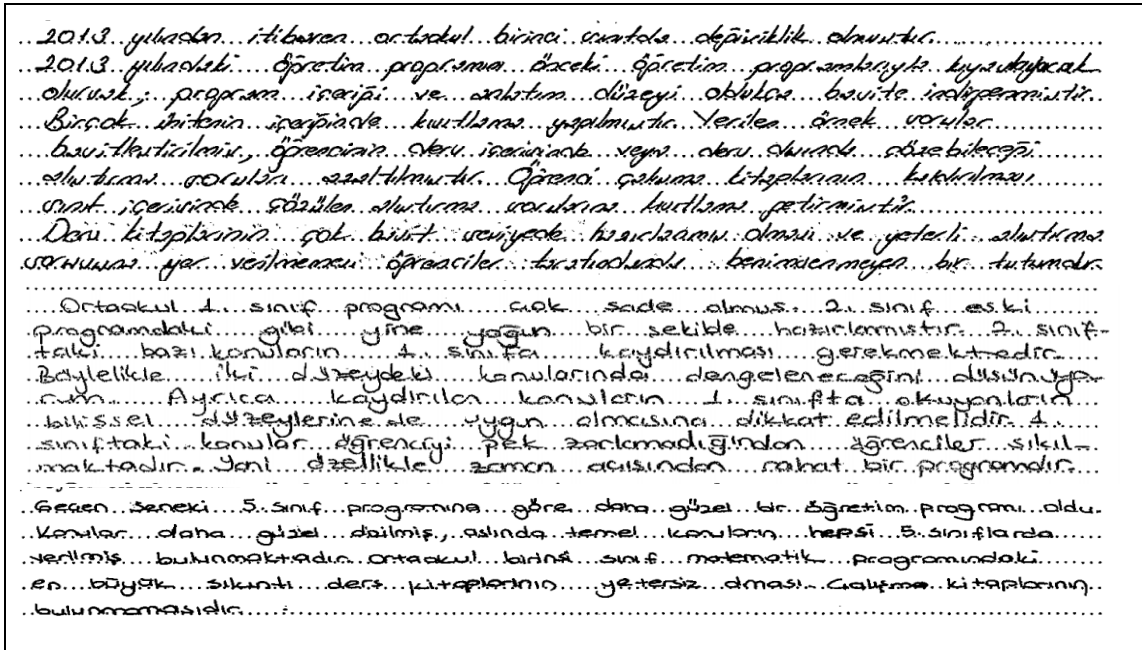 2013 yılından itibaren ortaokul birinci sınıfta değişiklik olmuştur.
2013 yılındaki öğretim programı önceki öğretim programlarıyla kıyaslayacak
olursak; program içeriği ve anlatım düzeyi oldukça basite indirgenmiştir.
Birçok ünitenin içeriğinde kısıtlama yapılmıştır. Verilen örnek sorular
basitleştirilmiş, öğrencinin ders içerisinde veya ders dışında çözebileceği
alıştırma soruları azaltılmıştır. Öğrenci çalışma kitaplarının kaldırılması
sınıf içerisinde çözülen alıştırma sorularına kısıtlama getirmiştir.
Ders kitaplarının çok basit seviyede hazırlanmış olması ve yeterli alıştırma
sorusuna yer verilmemesi öğrenciler tarafından benimsenmeyen bir tutumdur.
Ortaokul 1. sınıf programı çok sade olmuş. 2. sınıf eski
programdaki gibi yine yoğun bir şekilde hazırlanmıştır. 2. sınıf-
taki bazı konuların 1. sınıfa kaydırılması gerekmektedir.
Böylelikle iki düzeydeki konularında dengeleneceğini düşünüyo-
rum. Ayrıca kaydırılan konuların 1. sınıfta okuyanların
bilişsel düzeylerine de uygun olmasına dikkat edilmelidir. 1.
sınıftaki konular öğrenciyi pek zorlamadığından öğrenciler sıkıl-
maktadır. Yani özellikle zaman açısından rahat bir programdır.
Geçen seneki 5. sınıf programına göre daha güzel bir öğretim programı oldu.
Konular daha güzel dağılmış, aslında temel konuların hepsi 5. sınıflarda
verilmiş bulunmaktadır. Ortaokul birinsi sınıf matematik programındaki
en büyük sıkıntı ders kitaplarının yetersiz olması. Çalışma kitaplarının
bulunmamasıdır.